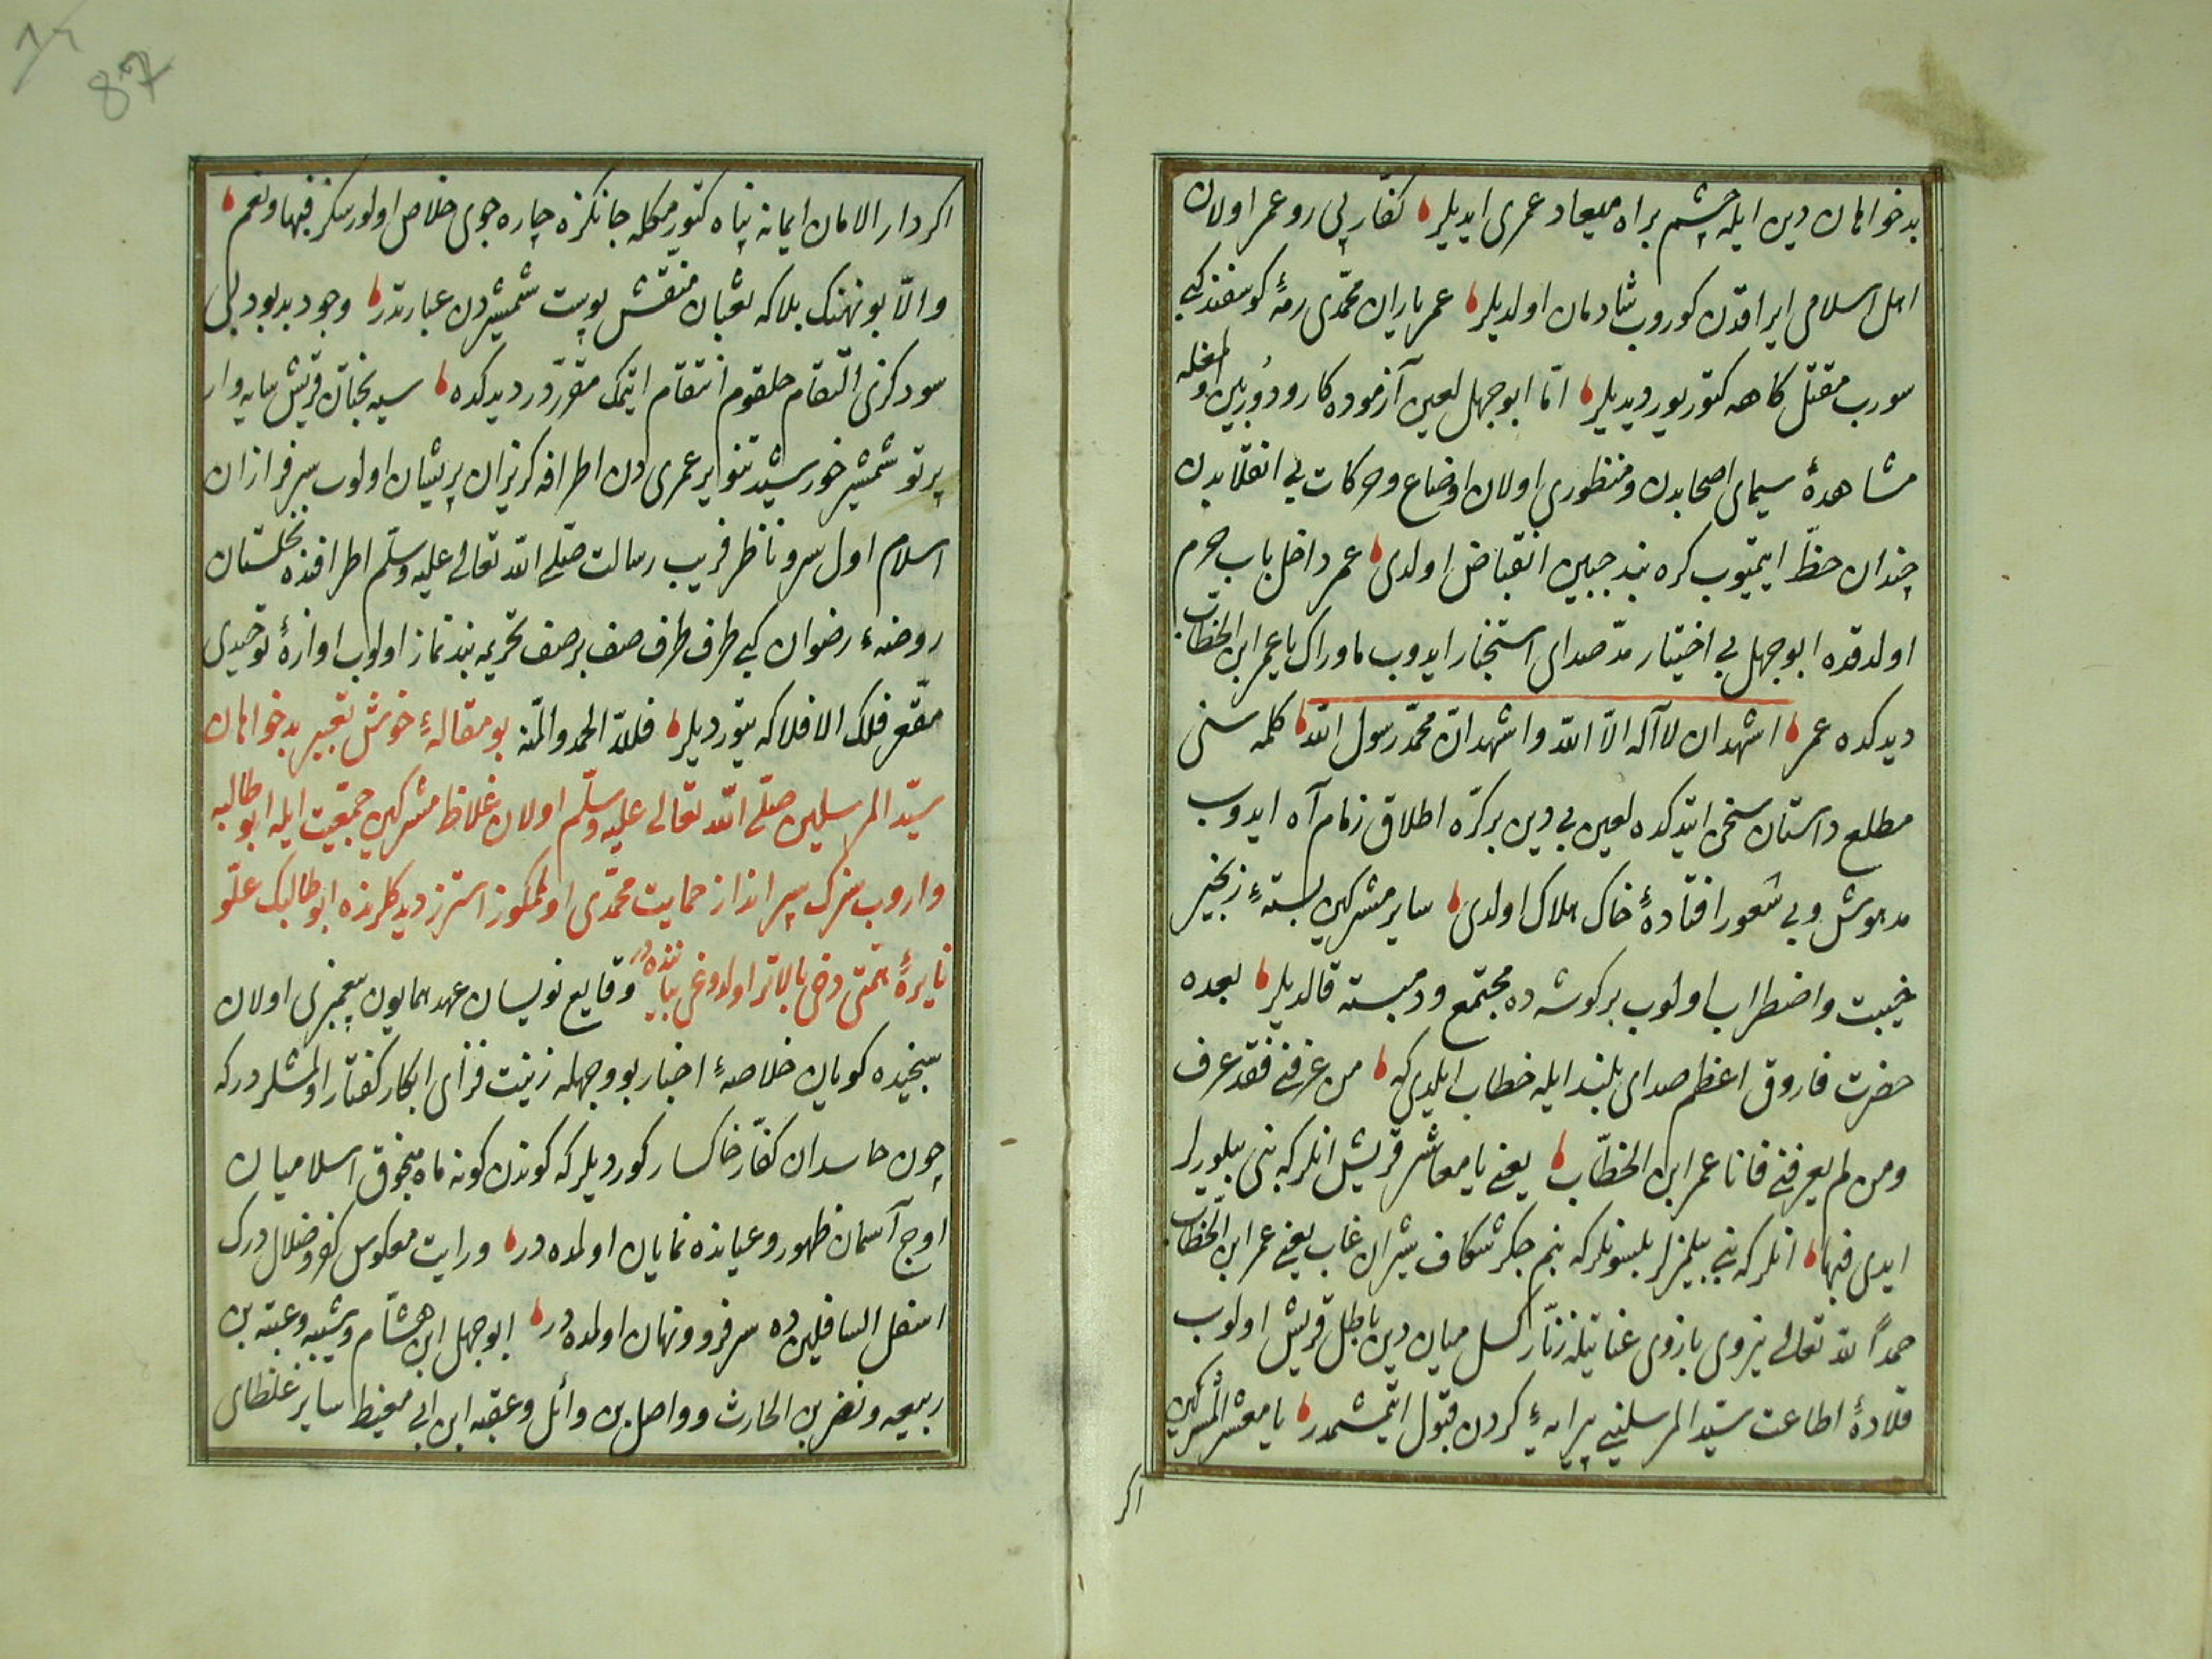 بدخواهان دین ایله چشم براه میعاد عمری ایدیلر کفار پی رو عمر اولان
اهل اسلامی ایراقدن کوروب شادمان اولدیلر عمر یاران محمدی رمهٔ کوسفند کبی
سورب مقتل کاهه کتوریور دیدیلر اما ابو جهل لعین آزموده کار و دوربین اولمغله
مشاهدهٔ سیمای اصحابدن و منظوری اولان اوضاع و حرکات بی انقلابدن
چندان حظ ایتمیوب کره بند جبین انقباض اولدی عمر داخل باب حرم
اولدقده ابو جهل بی اختیار مد صدای استخبار ایدوب ما وراک یا عمر ابن الخطاب
دیدکده عمر اشهد ان لا اله الا الله واشهد ان محمد رسول الله کلمه سنی
مطلع داستان سخن ایتدکده لعین بی دین بر کره اطلاق زمام آه ایدوب
مدهوش و بی شعور افتادهٔ خاک هلاک اولدی سایر مشرکین بستهٔ زنجیر
خیبت و اضطراب اولوب بر کوشه ده مجتمع و دم بسته قالدیلر بعده
حضرت فاروق اعظم صدای بلند ایله خطاب ایلدی که من عرفنی فقد عرف
ومن لم یعرفنی فانا عمر ابن الخطاب یعنی یا معاشر قریش انلر که بنی بیلورلر
ایدی فبها انلر که بنی بیلمزلر بلسونلر که بنم جکر شکاف شیران غاب یعنی عمر ابن الخطاب
حمداً لله تعالی نیروی بازوی عنایتله زنار کسل میان دین باطل قریش اولوب
قلادهٔ اطاعت سید المرسلینی پیرایهٔ کردن قبول ایتمشمدر یا معشر المشرکین
اکر
اکر دار الامان ایمانه پناه کتورمکله جانکزه چاره جوی خلاص اولورسکز فبها ونعم
والا بو نهنک بلا که ثعبان منقش پوست شمشیردن عبارتدر وجود بدبود بی
سودکزی التقام حلقوم انتقام ایتمک مقرردر دیدکده سیه بختان قریش سایه وار
پرتو شمشیر خورشید تنویر عمری دن اطرافه کریزان پریشان اولوب سرفرازان
اسلام اول سرو ناظر فریب رسالت صلی الله تعالی علیه وسلم اطرافنده نخلستان
روضهء رضوان کبی طرف طرف صف بر صف تحریمه بند نماز اولوب اوازهٔ توحیدی
مقعر فلک الافلاکه یتوردیلر فلله الحمد والمنه بو مقالهٔ خوش تعبیر بدخواهان
سید المرسلین صلی الله تعالی علیه وسلم اولان غلاظ مشرکین جمعیت ایله ابو طالبه
واروب سنک سپر انداز حمایت محمدی اولمکوز استرز دیدکلرنده ابو طالبک علو
نایرهٔ همتی دخی بالاتر اولدوغی بیاننده در وقایع نویسان عهد همایون پیغمبری اولان
سنجیده کویان خلاصهٔ اخبار بو وجهله زینت فزای ابکار کفتار اولمشلردر که
چون حاسدان کفار خاکسار کوردیلر که کوندن کونه ماه سنجوق اسلامیان
اوج آسمان ظهور و عیانده نمایان اولمده در ورایت معکوس کفر و ضلال درک
اسفل السافلین ده سرفرو ونهان اولمده در ابو جهل ابن هشام وشیبه وعتبه بن
ربیعه ونضر بن الحارث وواصل بن وائل وعقبه ابن ابی معیط سایر غلظای